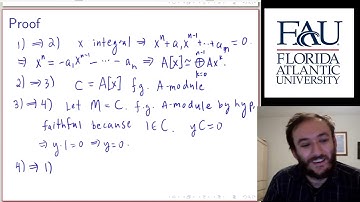 Proof
1) ⇒ 2) x integral ⇒ xⁿ + a₁xⁿ⁻¹ + ... + aₙ = 0.
⇒ xⁿ = -a₁xⁿ⁻¹ - ... - aₙ ⇒ A[x] ≃ ⊕ₖ₌₀ⁿ⁻¹ Axᵏ.
2) ⇒ 3) C = A[x] f.g. A-module
3) ⇒ 4) Let M = C. f.g. A-module by hyp,
faithful because 1 ∈ C. yC = 0
⇒ y·1 = 0 ⇒ y = 0.
4) ⇒ 1)
FAU
FLORIDA
ATLANTIC
UNIVERSITY